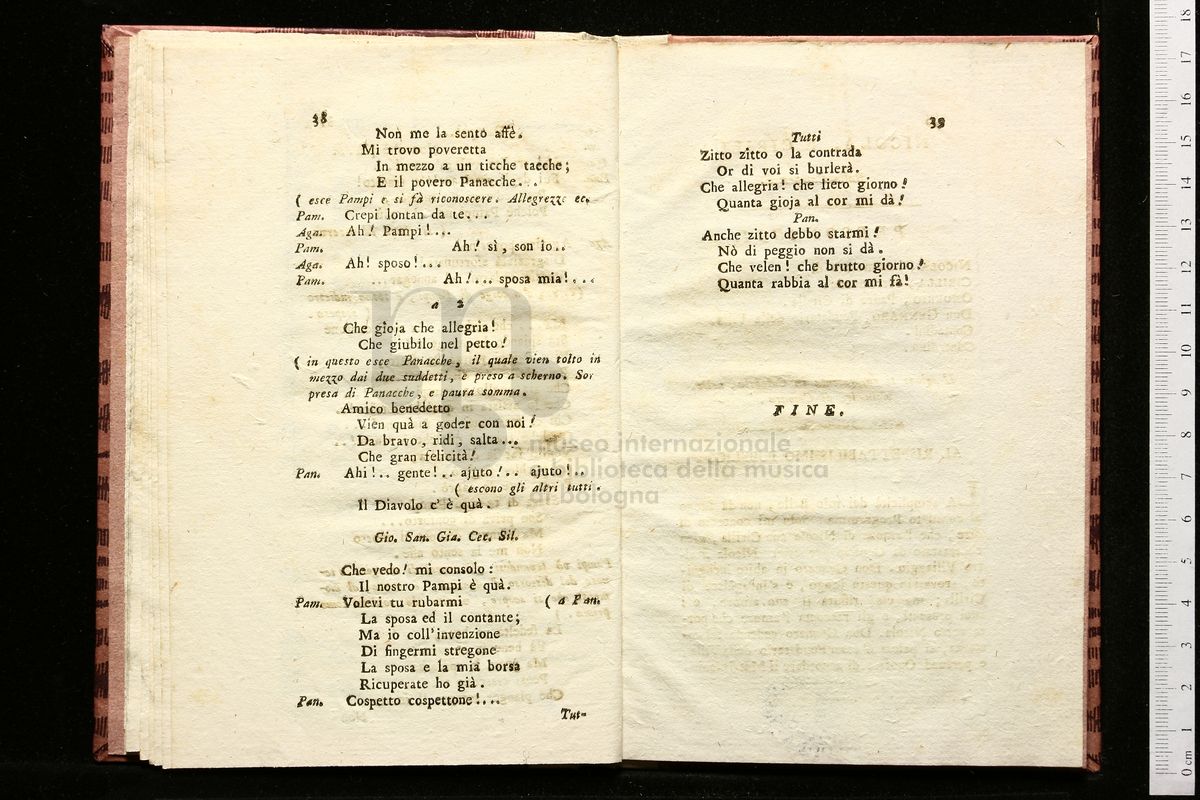 38
Non me la sento affè.
Mi trovo poveretta
In mezzo a un ticche tacche;
E il povero Panacche...
( esce Pampi e si fà riconoscere. Allegrezze ec.
Pam. Crepi lontan da te...
Aga. Ah! Pampi!...
Pam. Ah! sì, son io..
Aga. Ah! sposo!...
Pam. Ah!... sposa mia!...
a 2
Che gioja che allegria!
Che giubilo nel petto!
( in questo esce Panacche, il quale vien tolto in
mezzo dai due suddetti, e preso a scherno. Sor
presa di Panacche, e paura somma.
Amico benedetto
Vien quà a goder con noi!
Da bravo, ridi, salta...
Che gran felicità!
Pan. Ahi!.. gente!.. ajuto!.. ajuto!..
( escono gli altri tutti.
Il Diavolo c'è quà.
Gio. San. Gia. Cec. Sil.
Che vedo! mi consolo:
Il nostro Pampi è quà.
Pam. Volevi tu rubarmi ( a Pan.
La sposa ed il contante;
Ma io coll'invenzione
Di fingermi stregone
La sposa e la mia borsa
Ricuperate ho già.
Pan. Cospetto cospettone!...
Tut-
39
Tutti
Zitto zitto o la contrada
Or di voi si burlerà.
Che allegria! che lieto giorno!
Quanta gioja al cor mi dà!
Pan.
Anche zitto debbo starmi!
Nò di peggio non si dà.
Che velen! che brutto giorno!
Quanta rabbia al cor mi fà!
FINE.
museo internazionale
biblioteca della musica
di bologna
0 cm 1 2 3 4 5 6 7 8 9 10 11 12 13 14 15 16 17 18